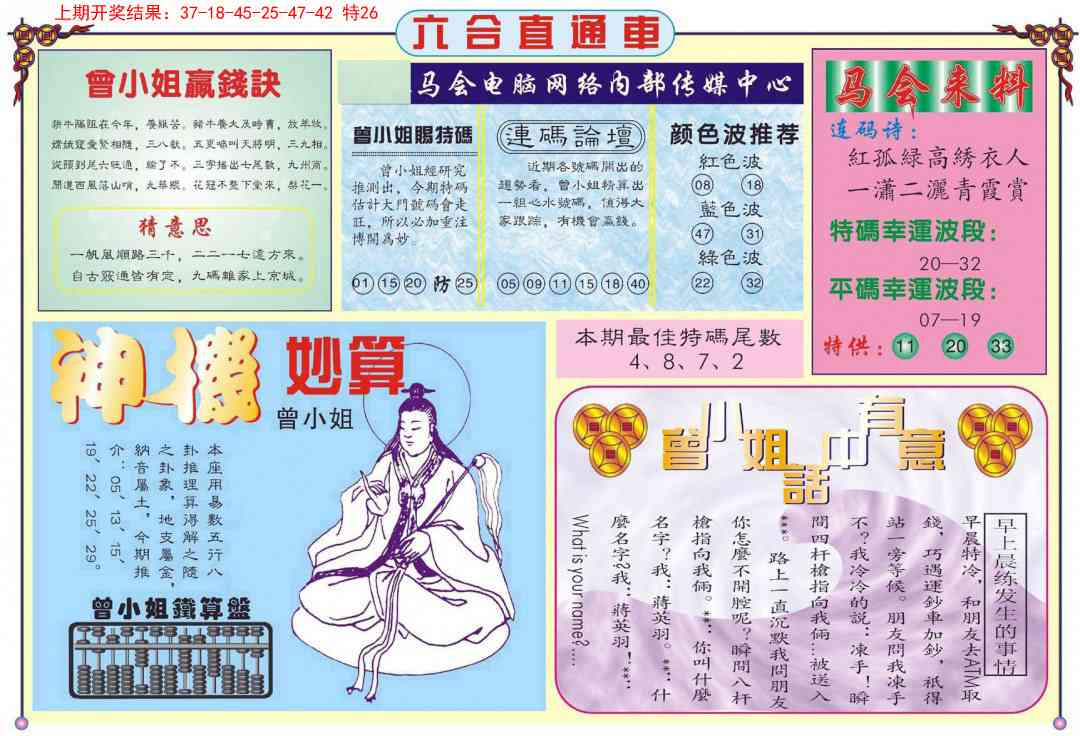 上期开奖结果：37-18-45-25-47-42 特26
六合直通車
曾小姐贏錢訣
猜意思
一帆風順路三千，二二一七遠方來。
自古竅通皆有定，九碼離家上京城。
马会电脑网络内部传媒中心
曾小姐賜特碼
曾小姐經研究
推測出，今期特碼
估計大門號碼會走
旺，所以必加重注
博開爲妙。
01 15 20 防 25
連碼論壇
近期各號碼開出的
趨勢看，曾小姐精算出
一組心水號碼，值得大
家跟踪，有機會贏錢。
05 09 11 15 18 40
颜色波推荐
紅色波
08 18
藍色波
47 31
綠色波
22 32
马会来料
连码诗：
紅孤緑高綉衣人
一瀟二灑青霞賞
特碼幸運波段：
20—32
平碼幸運波段：
07—19
特供：11 20 33
本期最佳特碼尾數
4、8、7、2
神機妙算
曾小姐
本座用易數五行八
卦推理算得解之隨
之卦象，地支屬金，
納音屬土，今期推
介：05、13、15、
19、22、25、29。
曾小姐鐵算盤
曾小姐話中有意
早上晨练发生的事情
早晨特冷，和朋友去ATM取
錢，巧遇運鈔車加鈔，祇得
站一旁等候。朋友問我凍手
不？我冷冷的說：凍手！瞬
間四杆槍指向我倆…被送入
***。路上一直沉默我問朋友
你怎麼不開腔呢？瞬間八杆
槍指向我倆。**：你叫什麼
名字？我：蔣英羽。**：什
麼名字？我：蔣英羽！**：
What is your name?....